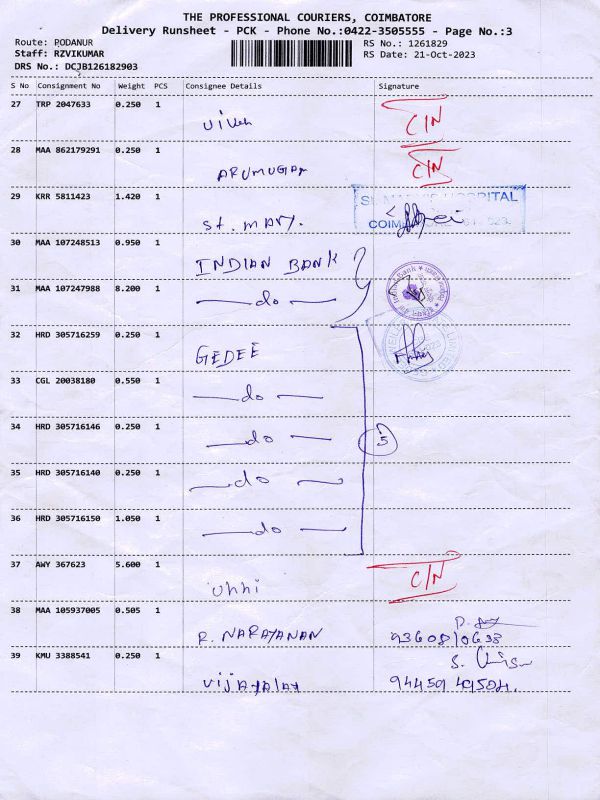 THE PROFESSIONAL COURIERS, COIMBATORE
Delivery Runsheet - PCK - Phone No.:0422-3505555 - Page No.:3
Route: PODANUR
RS No.: 1261829
Staff: RZVIKUMAR
RS Date: 21-Oct-2023
DRS No.: DCJB126182903
S No Consignment No Weight PCS Consignee Details Signature
27 TRP 2047633 0.250 1
C/N
28 MAA 862179291 0.250 1
ARUMUGAM C/N
29 KRR 5811423 1.420 1
HOSPITAL
St. MARY.
30 MAA 107248513 0.950 1
INDIAN BANK
31 MAA 107247988 8.200 1
do
32 HRD 305716259 0.250 1
GEDEE
33 CGL 20038180 0.550 1
do
34 HRD 305716146 0.250 1
do 5
35 HRD 305716140 0.250 1
do
36 HRD 305716150 1.050 1
do
37 AWY 367623 5.600 1
C/N
38 MAA 105937005 0.505 1
R. NARAYANAN 9360810638
39 KMU 3388541 0.250 1